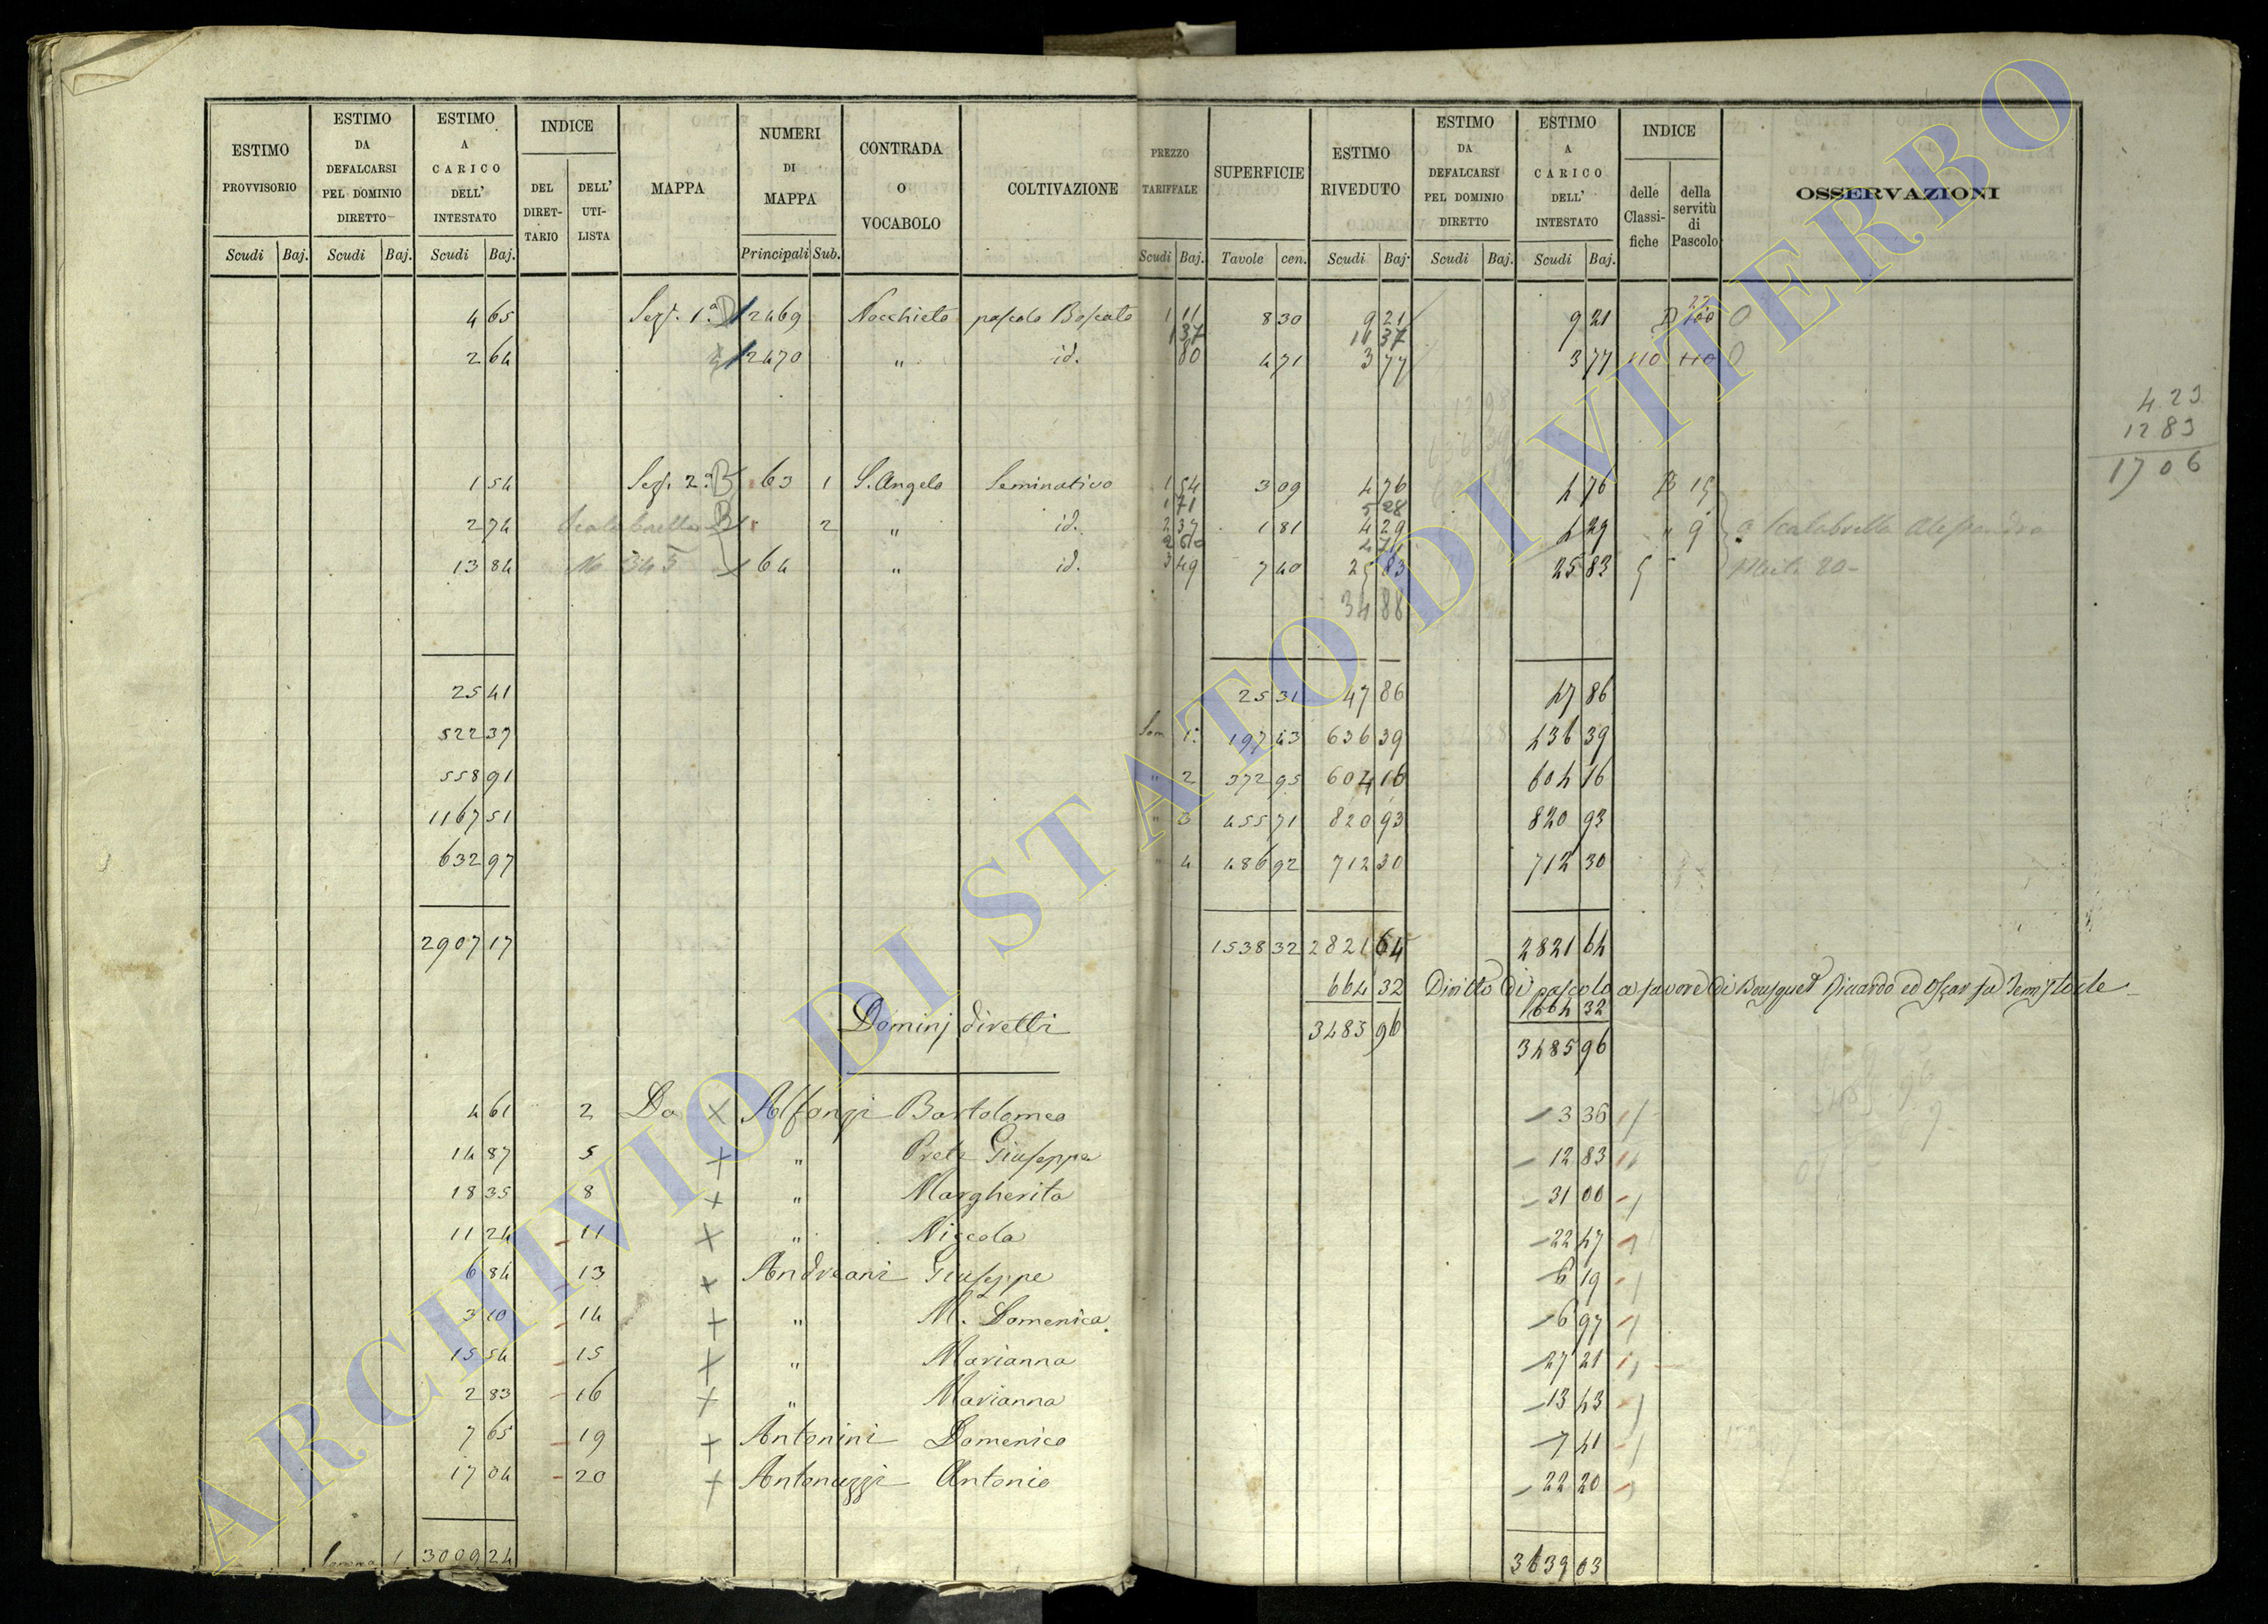 ESTIMO PROVVISORIO | ESTIMO DA DEFALCARSI PEL DOMINIO DIRETTO | ESTIMO A CARICO DELL' INTESTATO | INDICE | MAPPA | NUMERI DI MAPPA | CONTRADA O VOCABOLO | COLTIVAZIONE | PREZZO TARIFFALE | SUPERFICIE | ESTIMO RIVEDUTO | ESTIMO DA DEFALCARSI PEL DOMINIO DIRETTO | ESTIMO A CARICO DELL' INTESTATO | INDICE | OSSERVAZIONI
DEL DIRETTARIO | DELL' UTILISTA | delle Classifiche | della servitù di Pascolo
Scudi | Baj. | Scudi | Baj. | Scudi | Baj. | Principali | Sub. | Scudi | Baj. | Tavole | cen. | Scudi | Baj. | Scudi | Baj. | Scudi | Baj.
4 65 | Sez. 1.a D | 2469 | Nocchieto | pascolo Boscato | 1 11 | 8 30 | 9 21 | 9 21
1 37 | 11 37
2 64 | 2470 | " | id. | 80 | 4 71 | 3 77 | 3 77 | 110 | 110
4 23
12 83
17 06
1 54 | Sez. 2.a B | 63 | 1 | S. Angelo | Seminativo | 1 54 | 3 09 | 4 76 | 4 76 | B 15
1 71 | 5 28
2 74 | B | 2 | " | id. | 2 37 | 1 81 | 4 29 | 4 29 | " 9 | a Scalabrella Alessandro
2 60 | 4 71
13 84 | No 345 | 64 | " | id. | 3 49 | 7 40 | 25 83 | 25 83 | 5
34 88
25 41 | 25 31 | 47 86 | 47 86
522 37 | Som. 1. | 197 43 | 636 39 | 636 39
558 91 | " 2 | 372 95 | 604 16 | 604 16
1167 51 | " 3 | 455 71 | 820 93 | 820 93
632 97 | " 4 | 486 92 | 712 30 | 712 30
2907 17 | 1538 32 | 2821 64 | 2821 64
664 32 | Diritto di pascolo a favore di Bousquet Riccardo ed Oscar fu Temistocle
664 32
Dominj diretti | 3485 96 | 3485 96
4 61 | 2 | Da | Alfonzi Bartolomeo | 3 36
14 87 | 5 | " Prete Giuseppe | 12 83
18 35 | 8 | " Margherita | 31 00
11 24 | 11 | " Niccola | 22 47
6 84 | 13 | Andreani Giuseppe | 6 19
3 10 | 14 | " M.a Domenica | 6 97
15 54 | 15 | " Marianna | 27 21
2 83 | 16 | " Marianna | 13 43
7 65 | 19 | Antonini Domenico | 7 41
17 04 | 20 | Antonuzzi Antonio | 22 20
Somma 1 | 3009 24 | 3639 03
ARCHIVIO DI STATO DI VITERBO